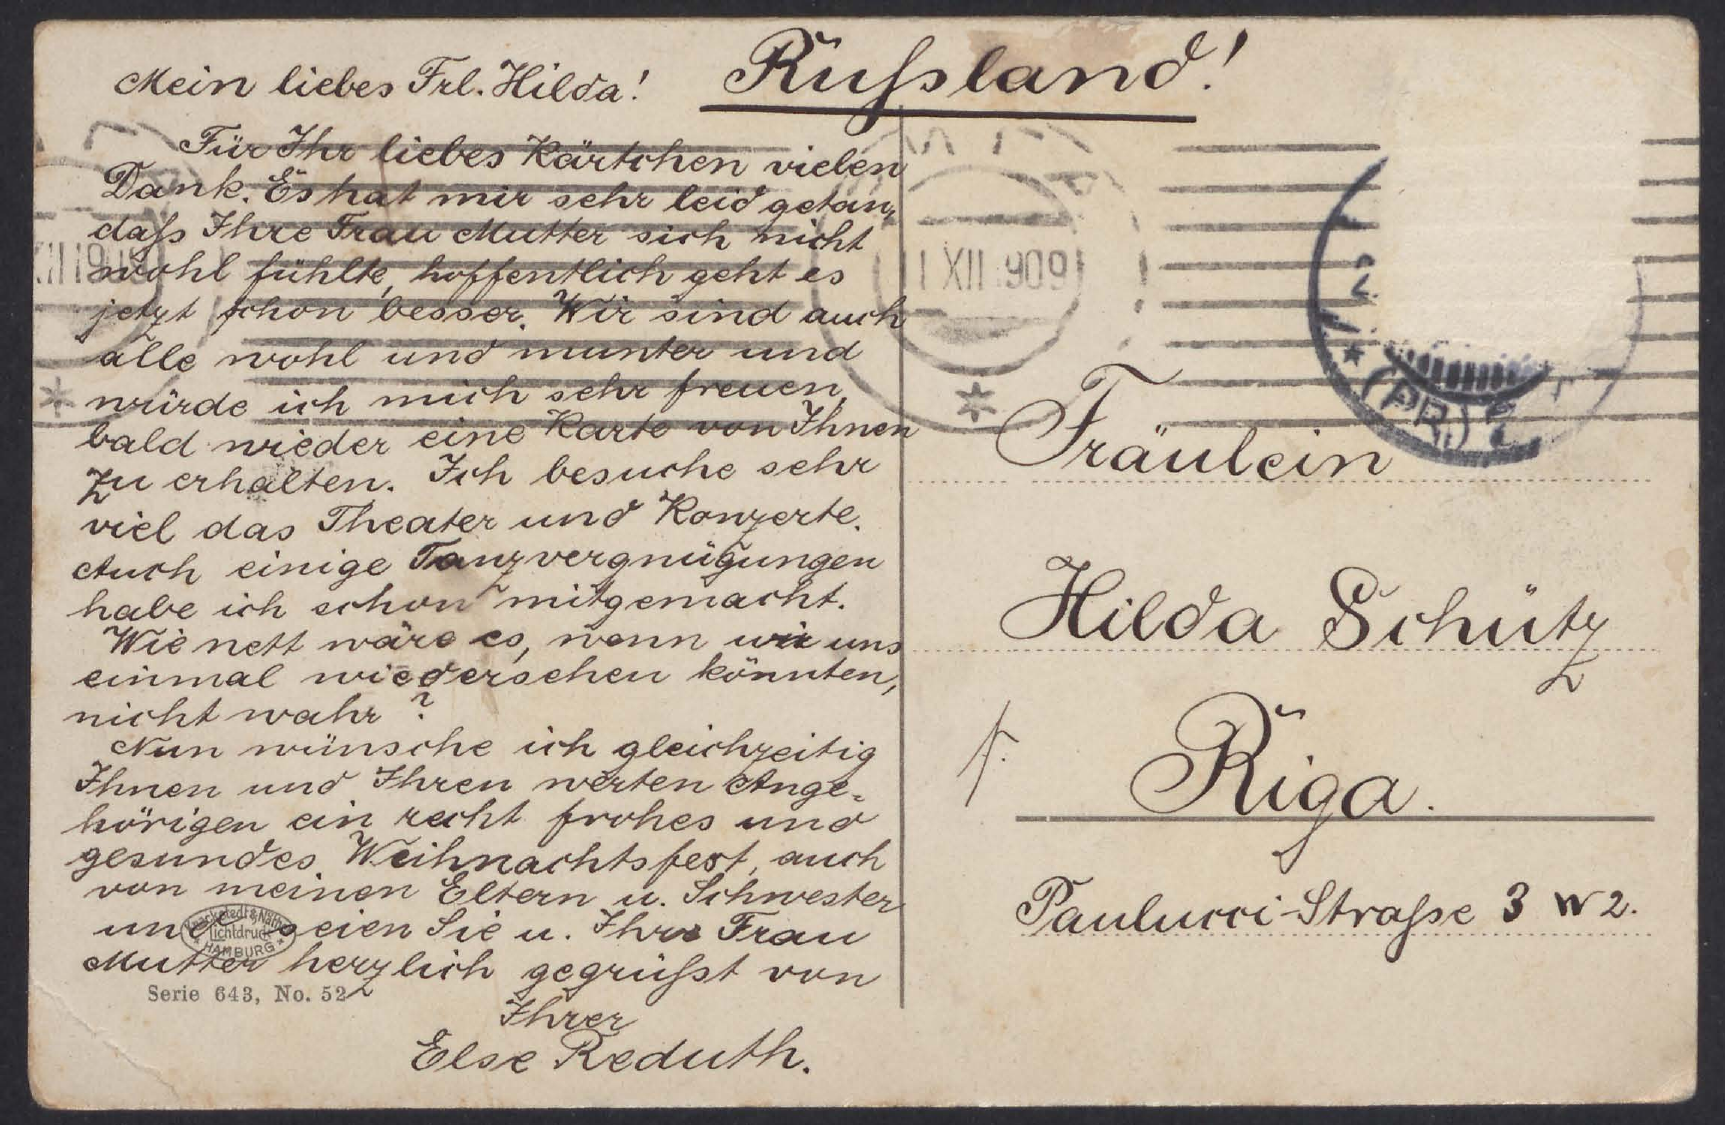 Rußland!
Mein liebes Frl. Hilda!
Für Ihr liebes Kärtchen vielen
Dank. Es hat mir sehr leid getan,
daß Ihre Frau Mutter sich nicht
wohl fühlte, hoffentlich geht es
jetzt schon besser. Wir sind auch
alle wohl und munter und
würde ich mich sehr freuen,
bald wieder eine Karte von Ihnen
zu erhalten. Ich besuche sehr
viel das Theater und Konzerte.
Auch einige Tanzvergnügungen
habe ich schon mitgemacht.
Wie nett wäre es, wenn wir uns
einmal wiedersehen könnten,
nicht wahr?
Nun wünsche ich gleichzeitig
Ihnen und Ihren werten Ange-
hörigen ein recht frohes und
gesundes Weihnachtsfest, auch
von meinen Eltern u. Schwester
und seien Sie u. Ihre Frau
Mutter herzlich gegrüßt von
Ihrer
Else Reduth.
Knackstedt & Näther
Lichtdruck
HAMBURG
Serie 643, No. 52
XII 1909
XII 1909
(PR.)
Fräulein
Hilda Schütz
Riga.
Paulucci-Straße 3 W 2.